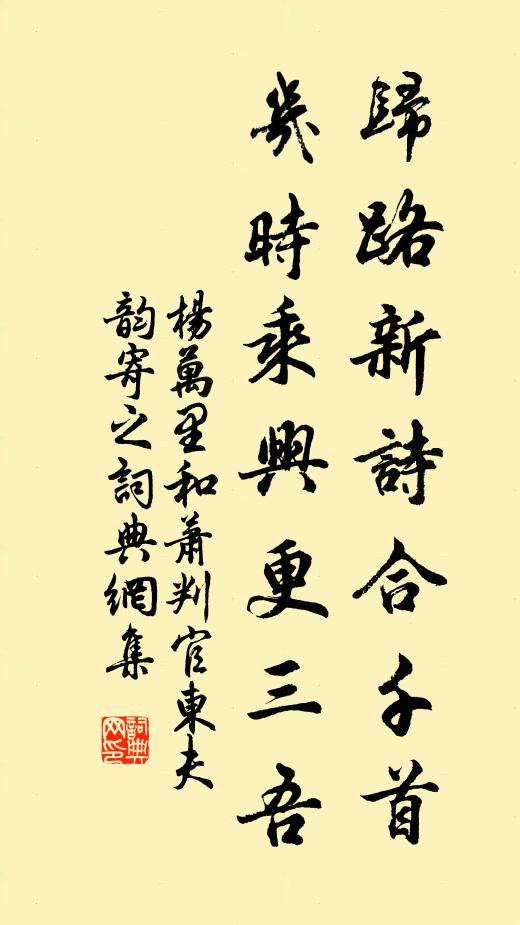 歸路新詩合千首
幾時乘興更三吾
楊萬里和蕭判官東夫
韵寄之詞典網集
詞典网印